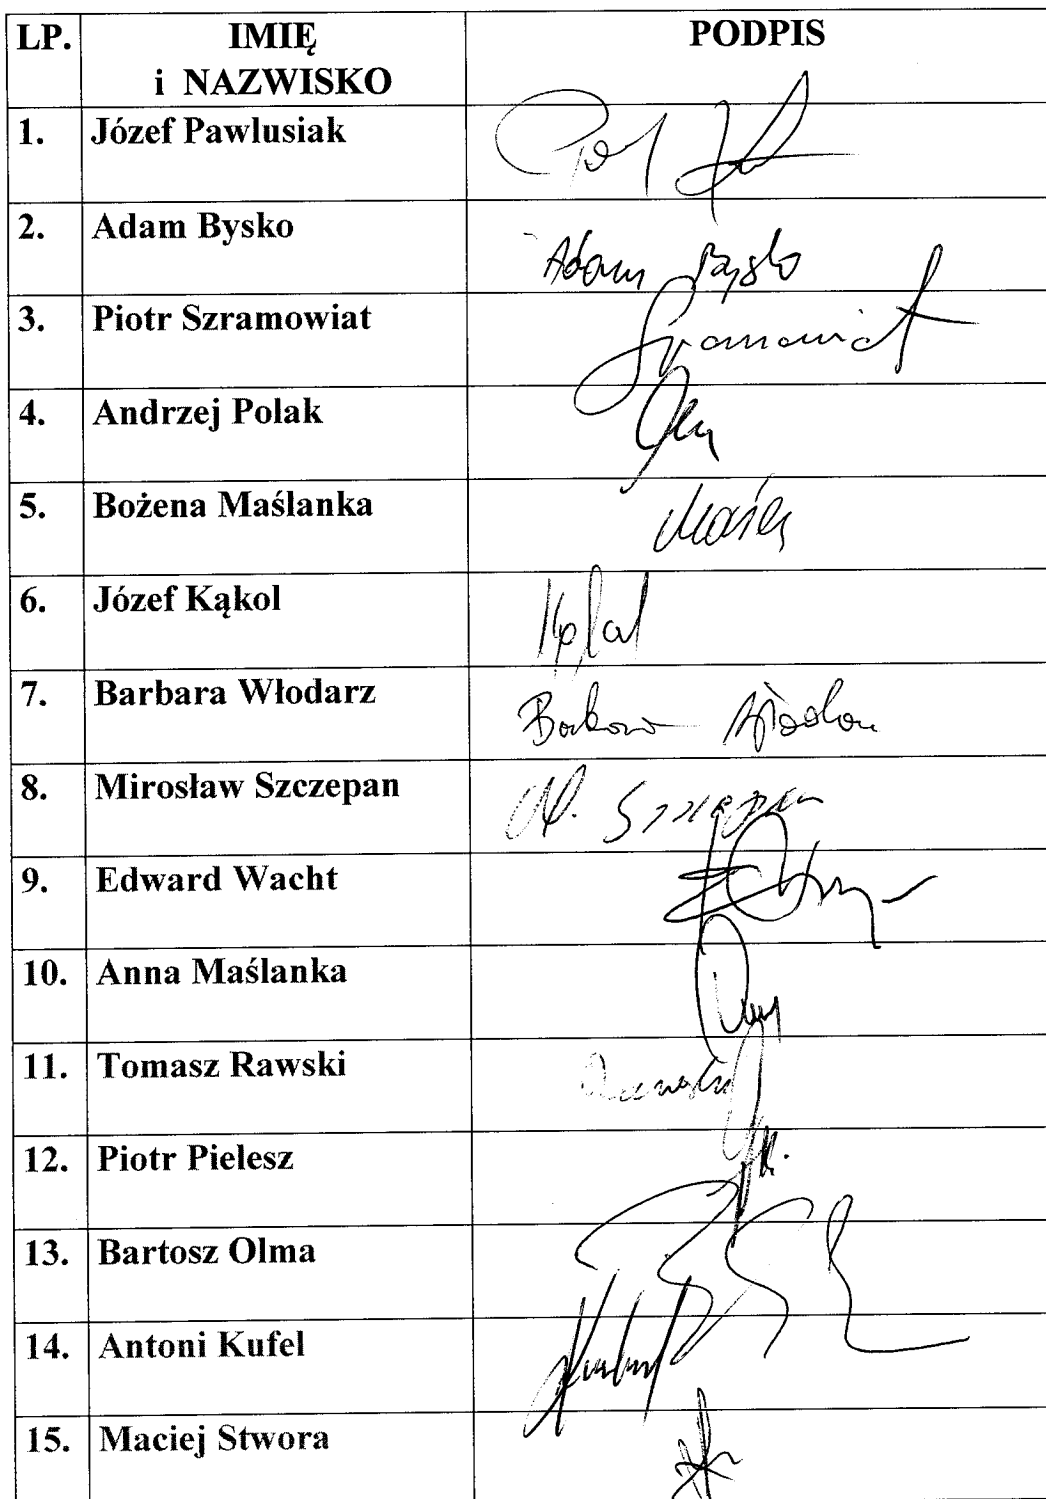 LP. IMIĘ PODPIS
i NAZWISKO
1. Józef Pawlusiak
2. Adam Bysko Adam Bysko
3. Piotr Szramowiat
4. Andrzej Polak
5. Bożena Maślanka
6. Józef Kąkol
7. Barbara Włodarz Barbara Włodarz
8. Mirosław Szczepan M. Szczepan
9. Edward Wacht
10. Anna Maślanka
11. Tomasz Rawski Rawski
12. Piotr Pielesz
13. Bartosz Olma
14. Antoni Kufel
15. Maciej Stwora